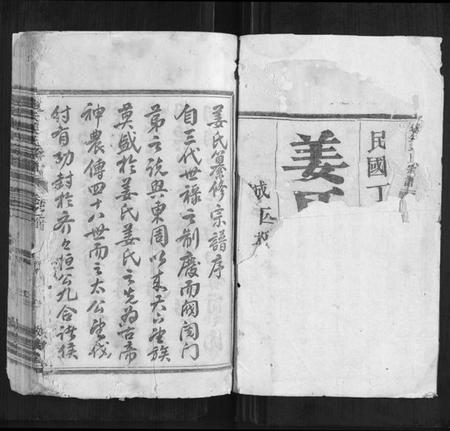 民國丁
姜氏
姜氏纂修宗譜序
自三代世祿之制廢而閥閱門
第之說興東周以來天下望族
莫盛於姜氏姜氏之先為古帝
神農傳四十八世而之太公望伐
紂有功封於齊々桓公九合諸侯